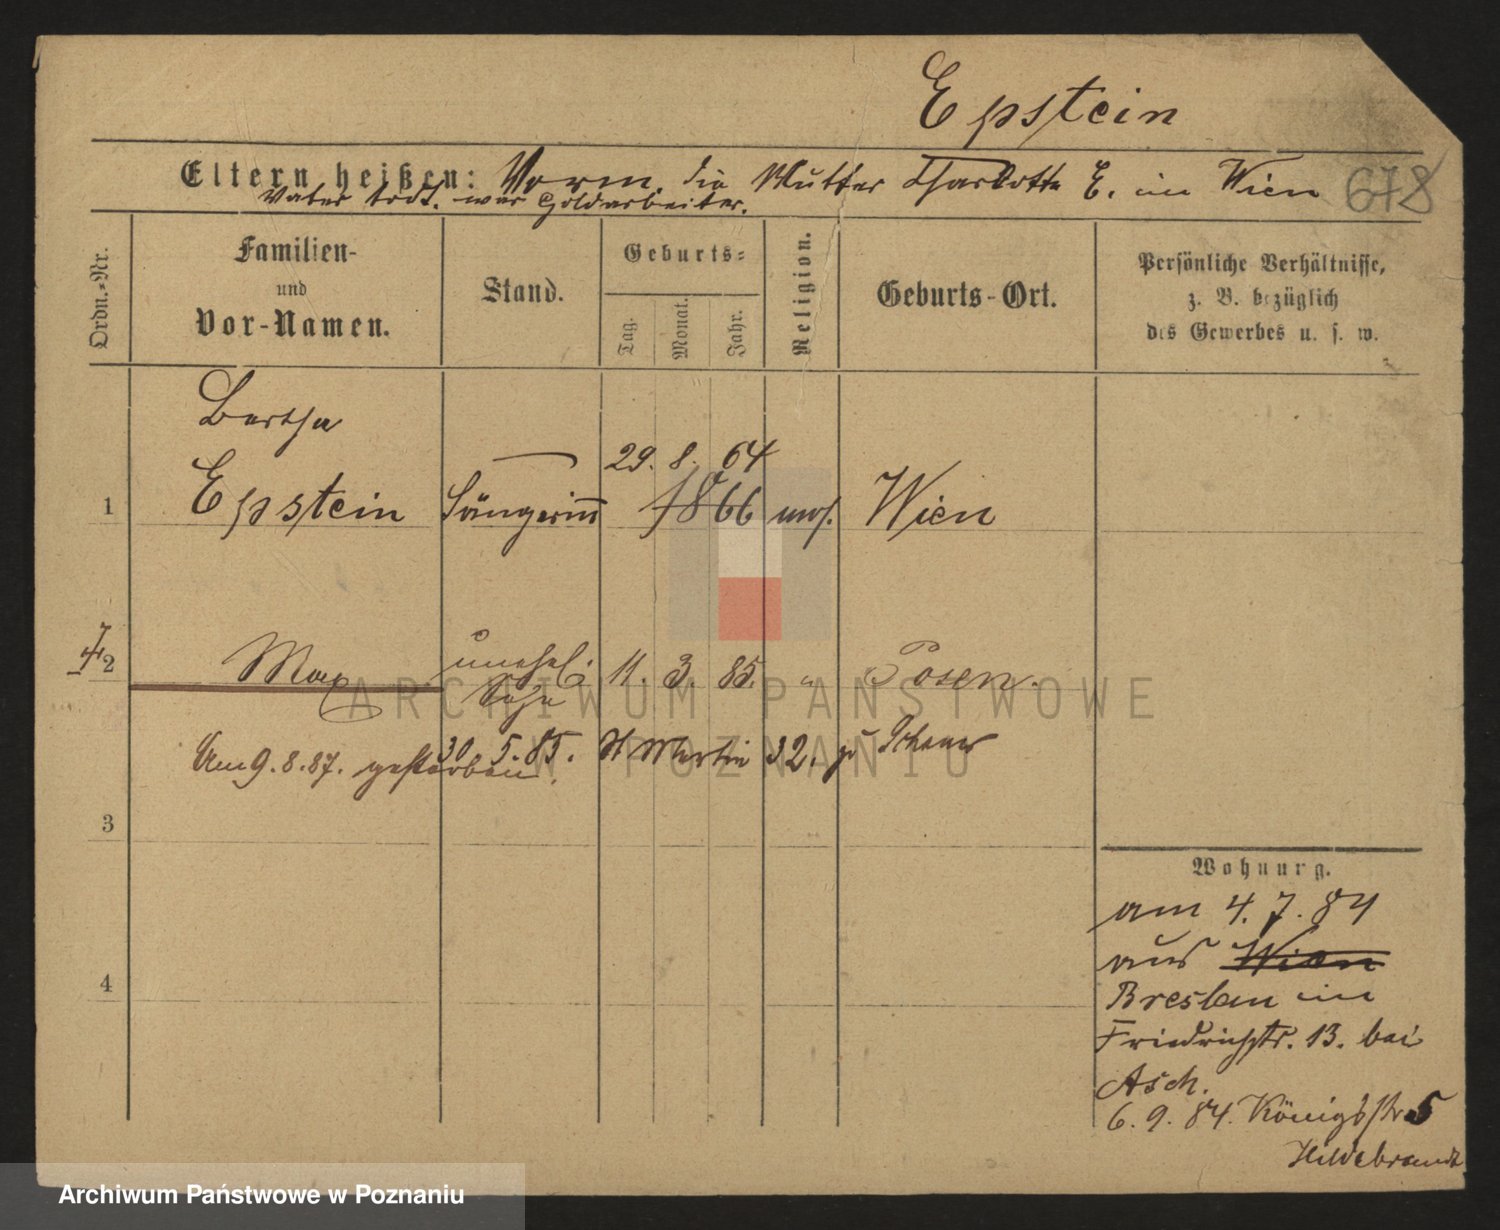 Epstein
Eltern heißen: Vorm. die Mutter Charlotte E. in Wien 678
Vater todt. war Goldarbeiter.
Ordn.-Nr.
Familien-
und
Vor-Namen.
Stand.
Geburts-
Tag.
Monat.
Jahr.
Religion.
Geburts-Ort.
Persönliche Verhältnisse,
z. B. bezüglich
des Gewerbes u. s. w.
Bertha
29. 8. 64
1 Epstein Sängerinn 1866 mos. Wien
2 Max unehel. Sohn 11. 3. 85. " Posen.
30. 5. 85. St Martin 32. zu
Am 9. 8. 87. gestorben.
3
Wohnung.
am 4. 7. 84
aus Wien
4
Breslau in
Friedrichstr. 13. bei
Asch.
6. 9. 84. Königsstr 5
Hildebrandt
ARCHIWUM PAŃSTWOWE
W POZNANIU
Archiwum Państwowe w Poznaniu